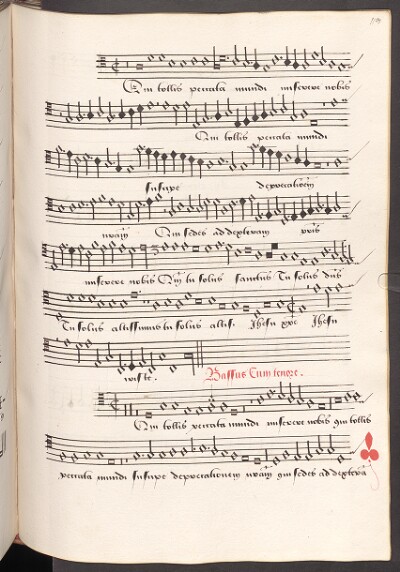 Qui tollis peccata mundi miserere nobis
Qui tollis peccata mundi
suscipe deprecationem
nrām Qui sedes ad dexteram pris
miserere nobis Qm̄ tu solus sanctus Tu solus dn̄s
Tu solus altissimus tu solus altis. Jhesu xpe Jhesu
xpiste.
Bassus Cum tenore.
Qui tollis peccata mundi miserere nobis qui tollis
peccata mundi suscipe deprecationem nrām qui sedes ad dextera